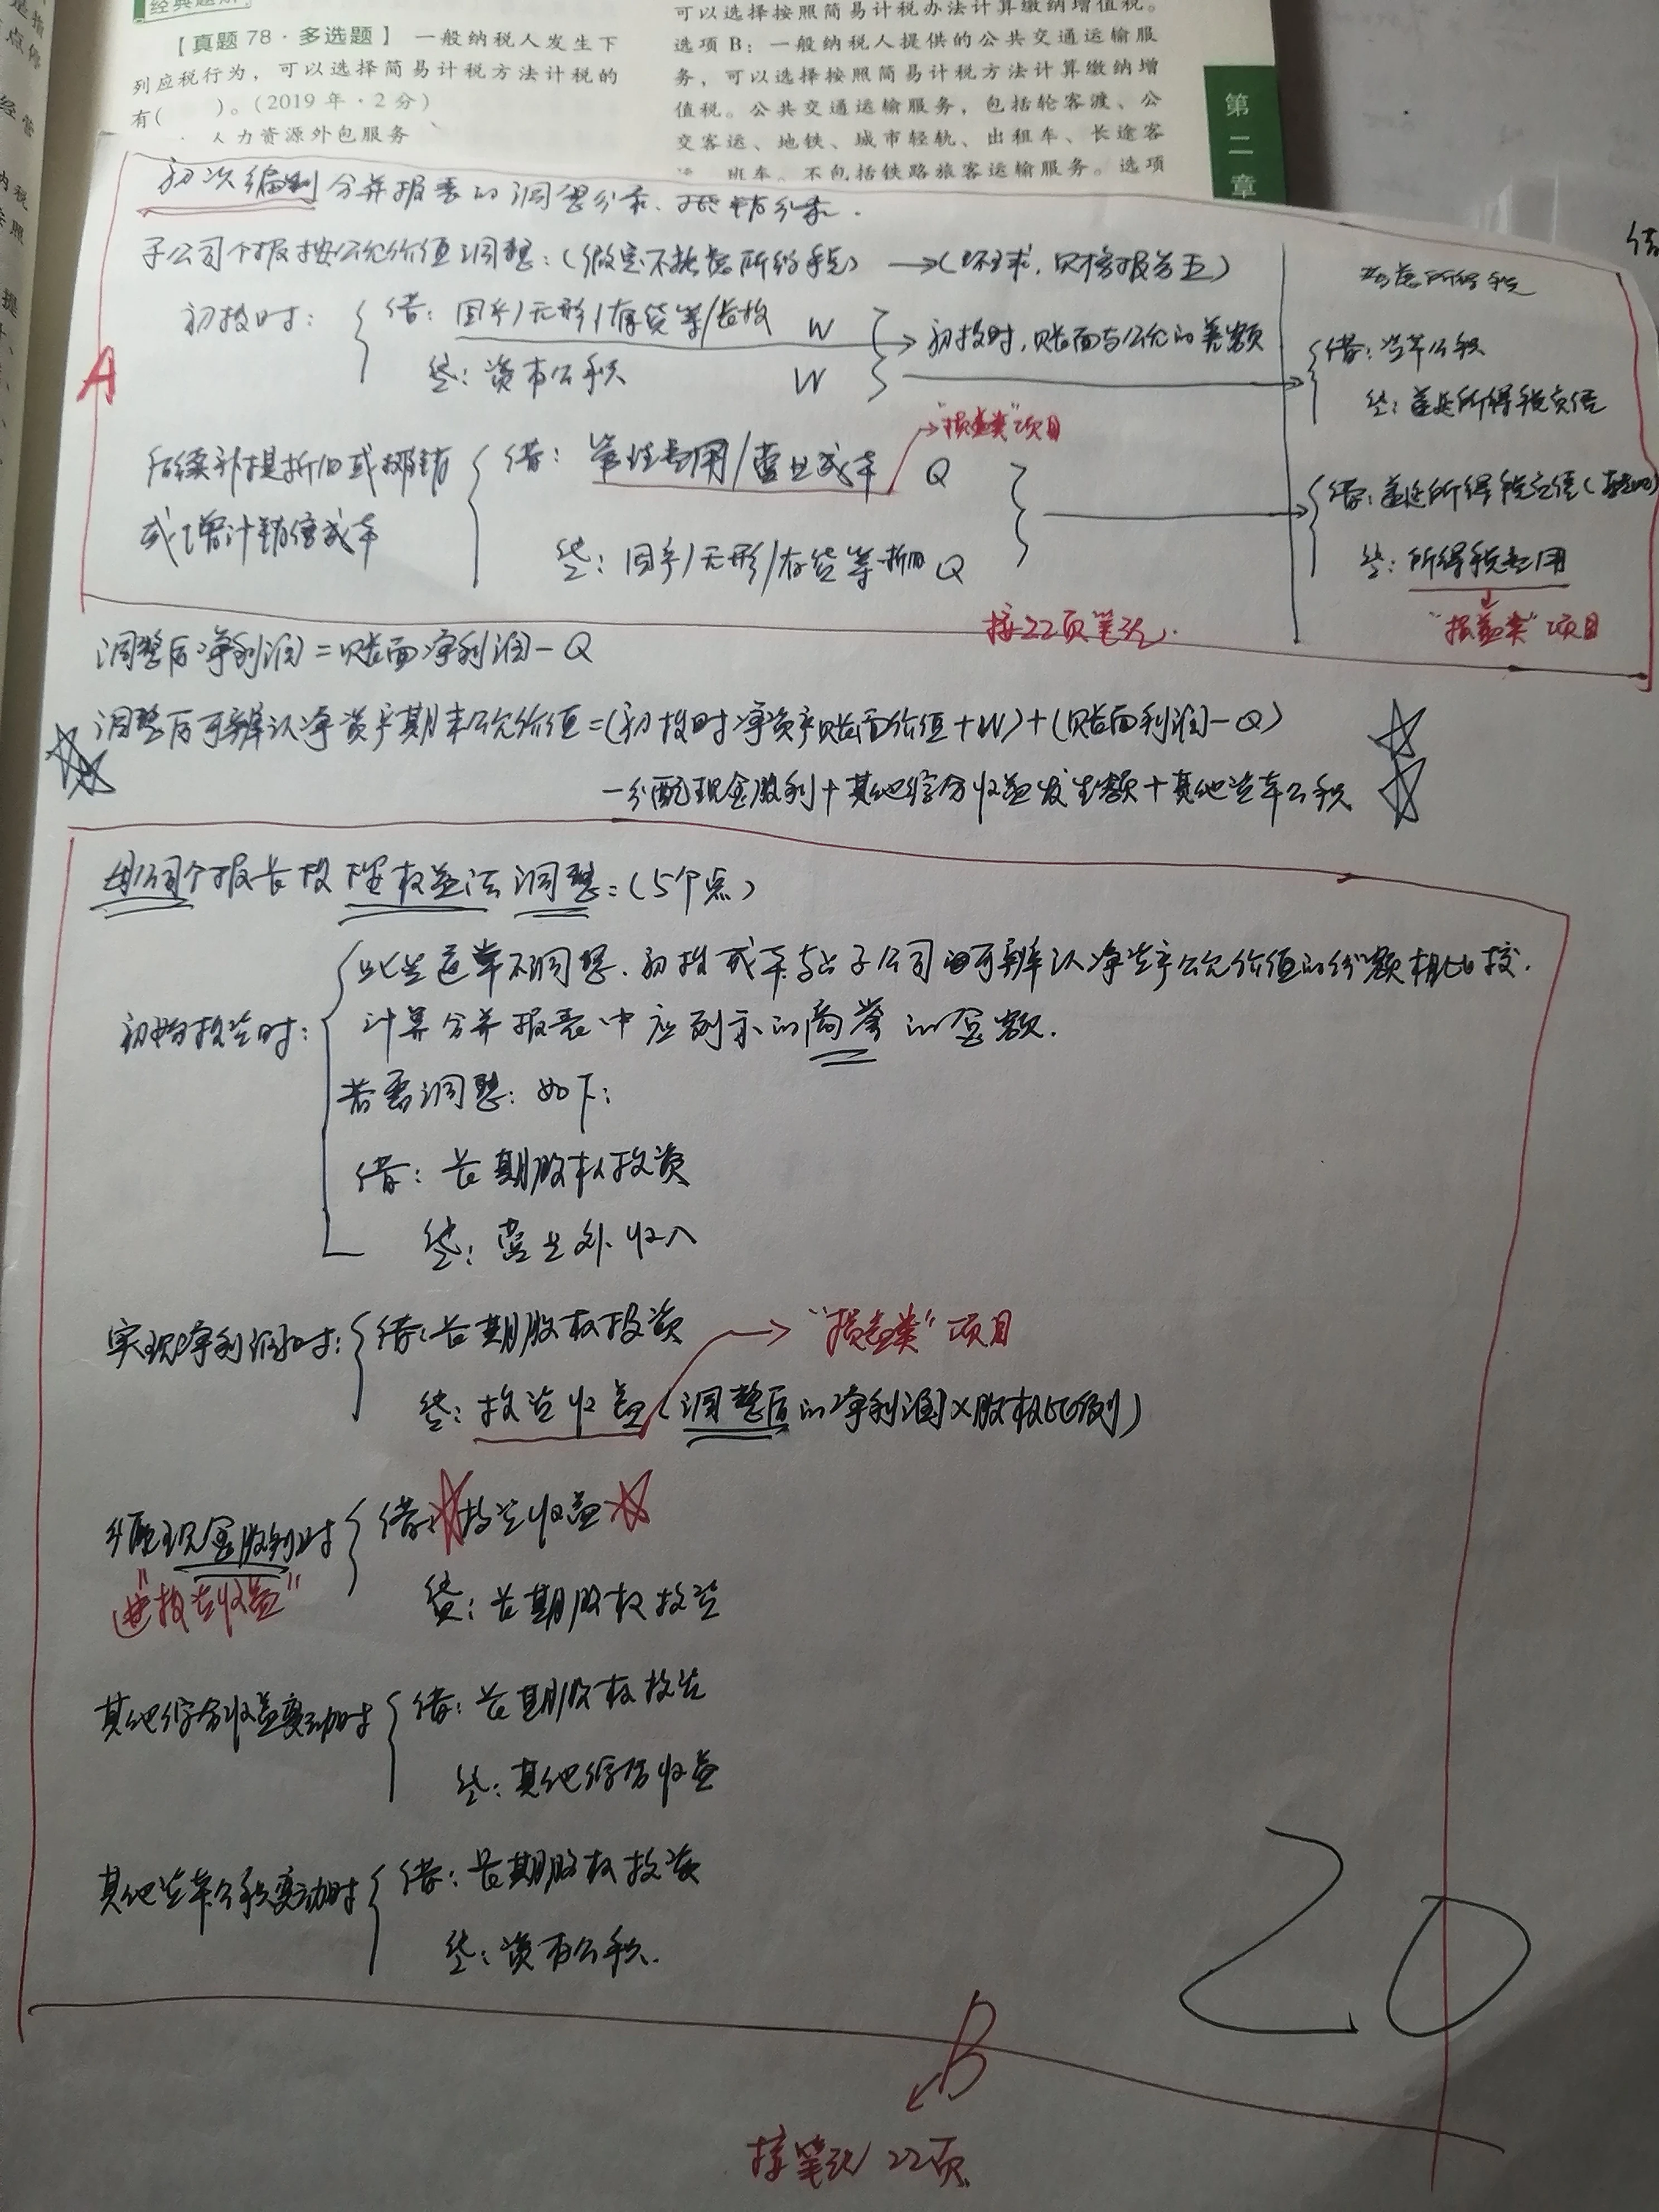 经典题解
【真题 78·多选题】 一般纳税人发生下
列应税行为，可以选择简易计税方法计税的
有(　　)。(2019年·2分)
人力资源外包服务
可以选择按照简易计税办法计算缴纳增值税。
选项 B：一般纳税人提供的公共交通运输服
务，可以选择按照简易计税方法计算缴纳增
值税。公共交通运输服务，包括轮客渡、公
交客运、地铁、城市轻轨、出租车、长途客
班车。不包括铁路旅客运输服务。选项
第二章
借
初次编制合并报表的调整分录、抵销分录.
子公司个报按公允价值调整：(假定不考虑所得税) →
考虑所得税
A
初投时： 借：固手/无形/存货等/长投 W
→初投时，账面与公允的差额
贷：资本公积 W
借：资本公积
贷：递延所得税负债
"损益类"项目
后续补提折旧或摊销
或增计销售成本
借：管理费用/营业成本 Q
贷：固手/无形/存货等-折旧 Q
借：递延所得税负债
贷：所得税费用
"损益类"项目
接22页笔记.
调整后净利润=账面净利润-Q
调整后可辨认净资产期末公允价值=(初投时净资产账面价值+W)+(账面利润-Q)
-分配现金股利+其他综合收益发生额+其他资本公积
母公司个报长投按权益法调整：(5个点)
初始投资时： 此笔通常不调整.初投成本与占子公司可辨认净资产公允价值的份额相比较.
计算合并报表中应列示的商誉的金额.
若需调整：如下：
借：长期股权投资
贷：营业外收入
实现净利润时： 借：长期股权投资 → "损益类"项目
贷：投资收益(调整后的净利润×股权比例)
分配现金股利时 借：投资收益
"投资收益"
贷：长期股权投资
其他综合收益变动时 借：长期股权投资
贷：其他综合收益
其他资本公积变动时 借：长期股权投资
贷：资本公积.
20
B
接笔记22页